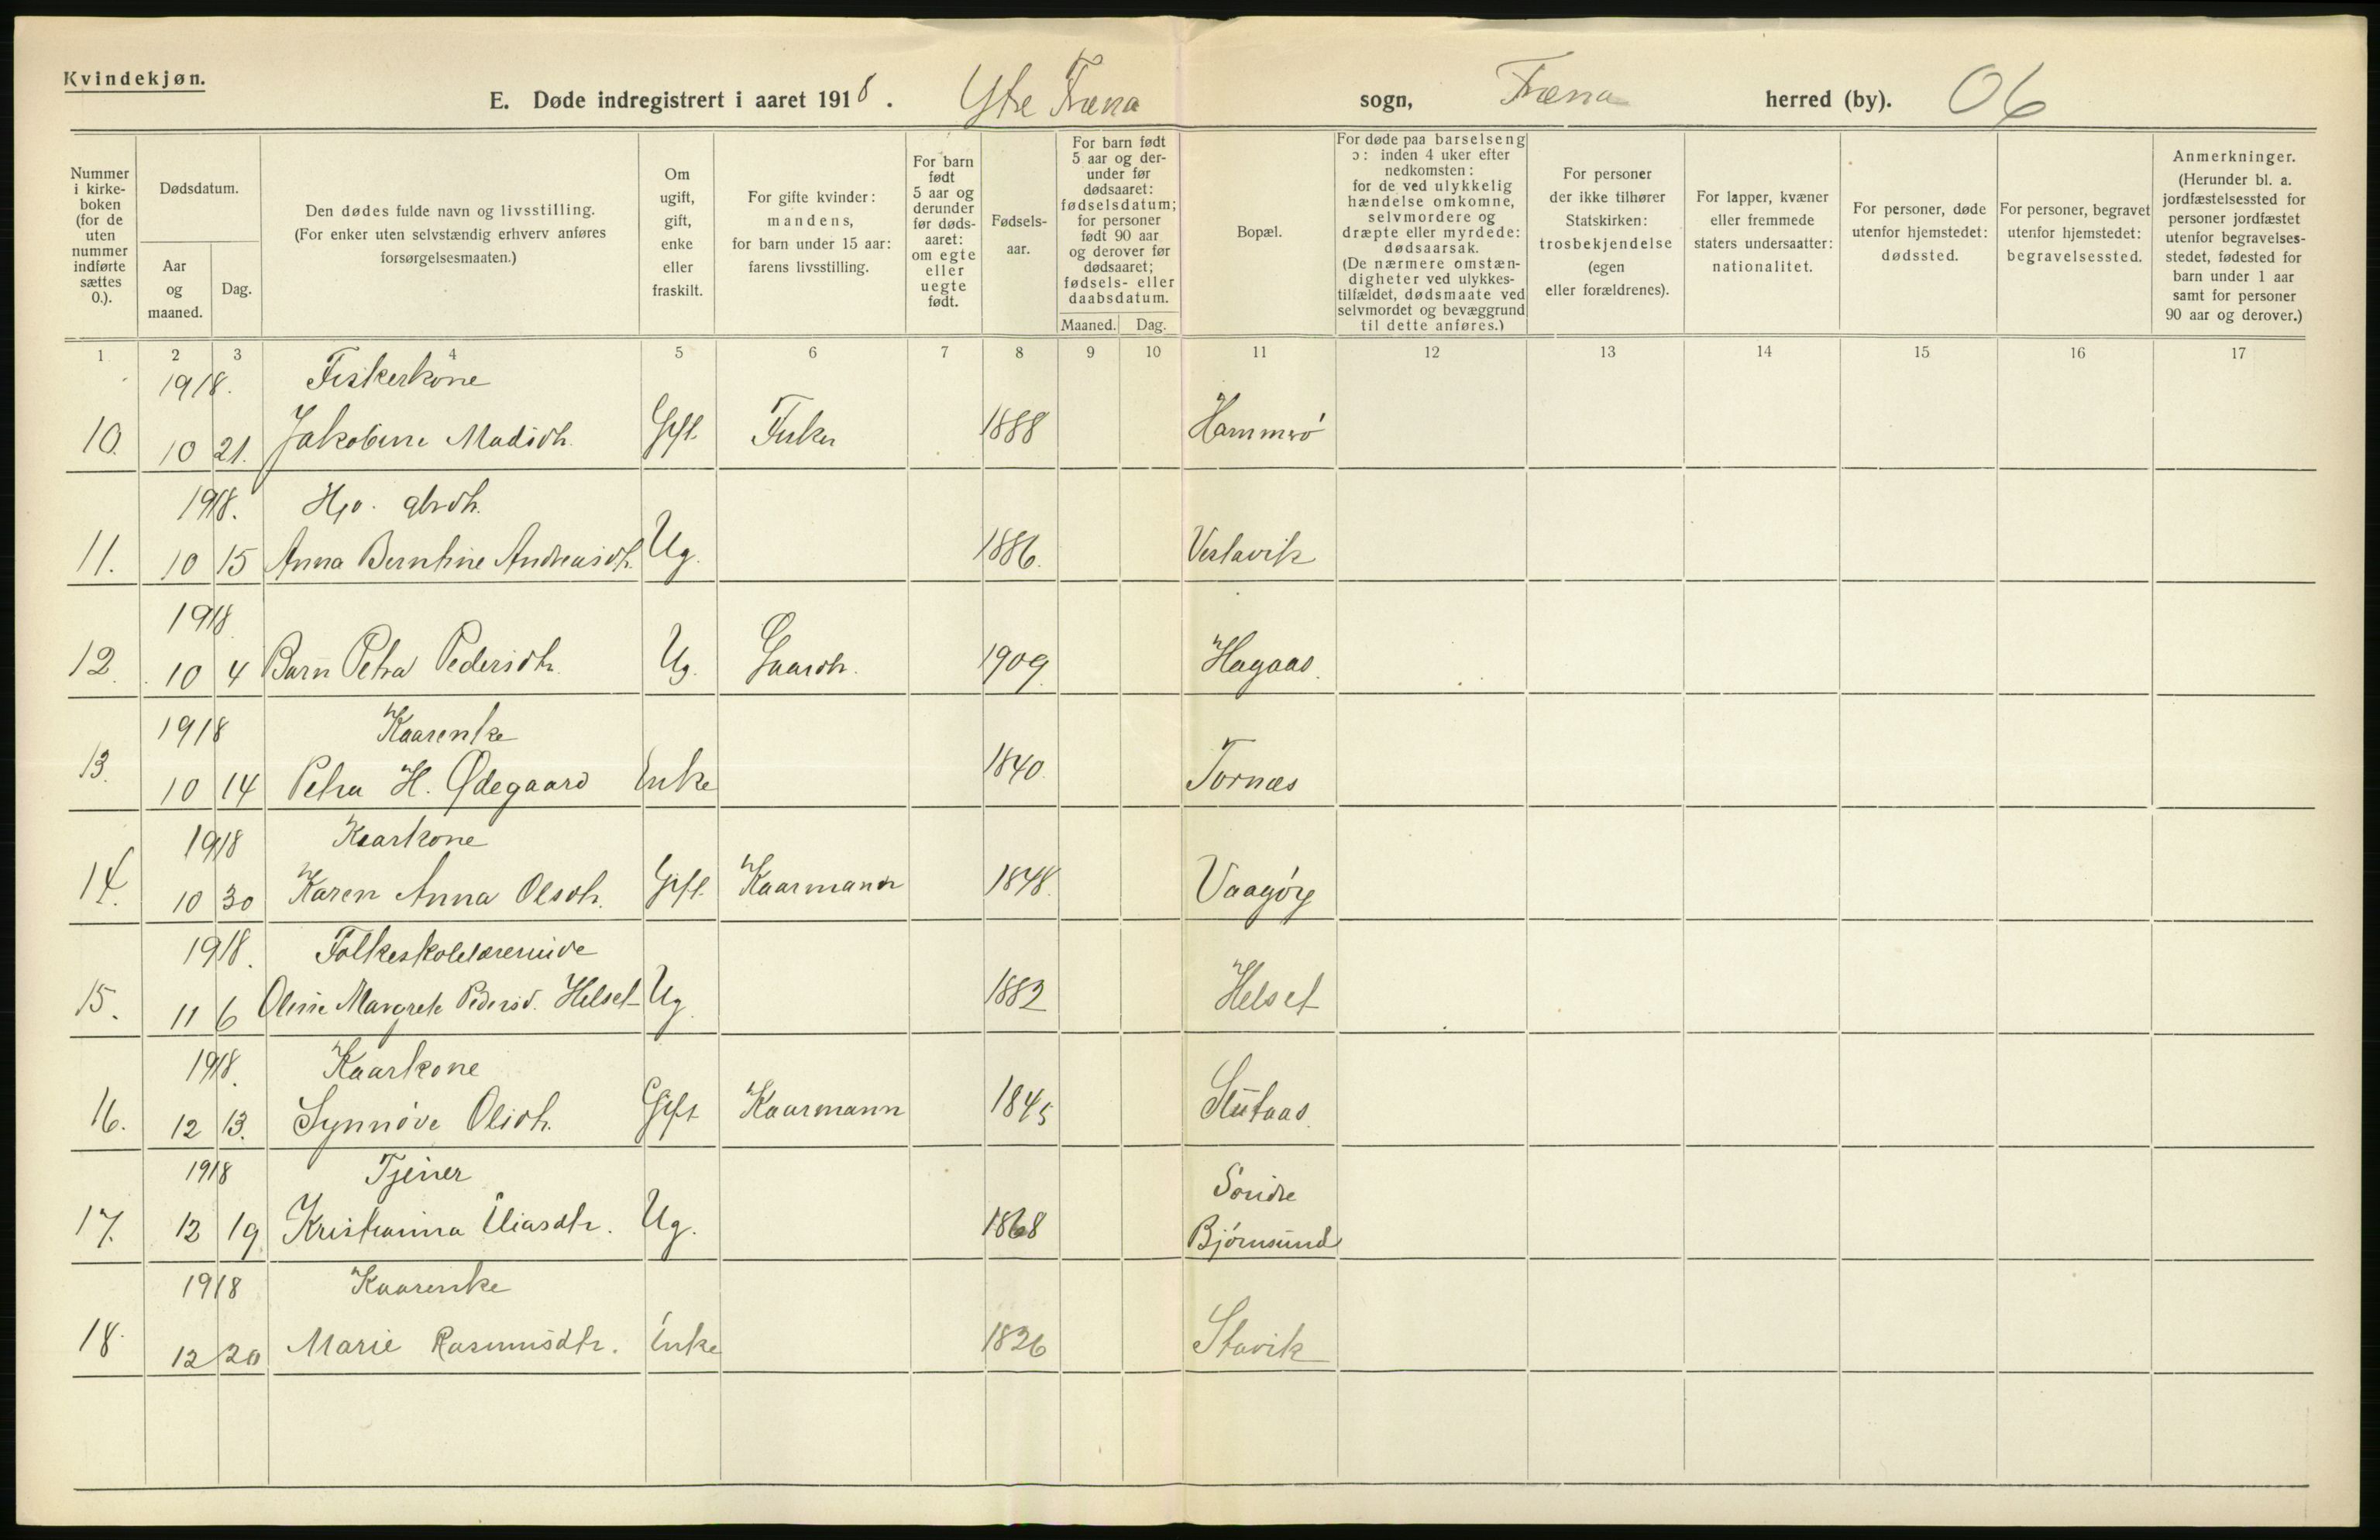 Kvindekjøn.
E. Døde indregistrert i aaret 1918. Ytre Fræna sogn, Fræna herred (by). 06
Nummer i kirke- boken (for de uten nummer indførte sættes 0.).
Dødsdatum.
Aar og maaned.
Dag.
Den dødes fulde navn og livsstilling.
(For enker uten selvstændig erhverv anføres
forsørgelsesmaaten.)
Om ugift, gift, enke eller fraskilt.
For gifte kvinder: mandens, for barn under 15 aar: farens livsstilling.
For barn født 5 aar og derunder før døds- aaret: om egte eller uegte født.
Fødsels- aar.
For barn født 5 aar og der- under før dødsaaret: fødselsdatum; for personer født 90 aar og derover før dødsaaret; fødsels- eller daabsdatum.
Maaned. Dag.
Bopæl.
For døde paa barselseng ɔ: inden 4 uker efter nedkomsten: for de ved ulykkelig hændelse omkomne, selvmordere og dræpte eller myrdede: dødsaarsak. (De nærmere omstæn- digheter ved ulykkes- tilfældet, dødsmaate ved selvmordet og bevæggrund til dette anføres.)
For personer der ikke tilhører Statskirken: trosbekjendelse (egen eller forældrenes).
For lapper, kvæner eller fremmede staters undersaatter: nationalitet.
For personer, døde utenfor hjemstedet: dødssted.
For personer, begravet utenfor hjemstedet: begravelsessted.
Anmerkninger. (Herunder bl. a. jordfæstelsessted for personer jordfæstet utenfor begravelses- stedet, fødested for barn under 1 aar samt for personer 90 aar og derover.)
1 2 3 4 5 6 7 8 9 10 11 12 13 14 15 16 17
1918. Fiskerkone
10. 10 21. Jakobine Madsdtr. Gift Fisker 1888 Hammerö
1918. Hjv. gbrdtr.
11. 10 15 Anna Berntine Andreasdtr. Ug. 1886. Vestavik
1918
12. 10 4 Barn Petra Pedersdtr. Ug. Gaardbr. 1909. Hagaas.
1918 Kaarenke
13. 10 14 Petra H. Ødegaard Enke 1840. Tornæs
1918 Kaarkone
14. 10 30 Karen Anna Olsdtr. Gift. Kaarmann 1848. Vaagöy
1918. Folkeskolelærerinde
15. 11 6 Oline Margrete Pedersd. Helset Ug. 1882 Helset
1918. Kaarkone
16. 12 13. Synnöve Olsdtr. Gift Kaarmann 1845 Stutaas.
1918 Tjener Söndre
17. 12 19 Kristianna Eliasdtr. Ug. 1868 Björnsund
1918 Kaarenke
18. 12 20 Marie Rasmusdtr. Enke 1826 Stavik